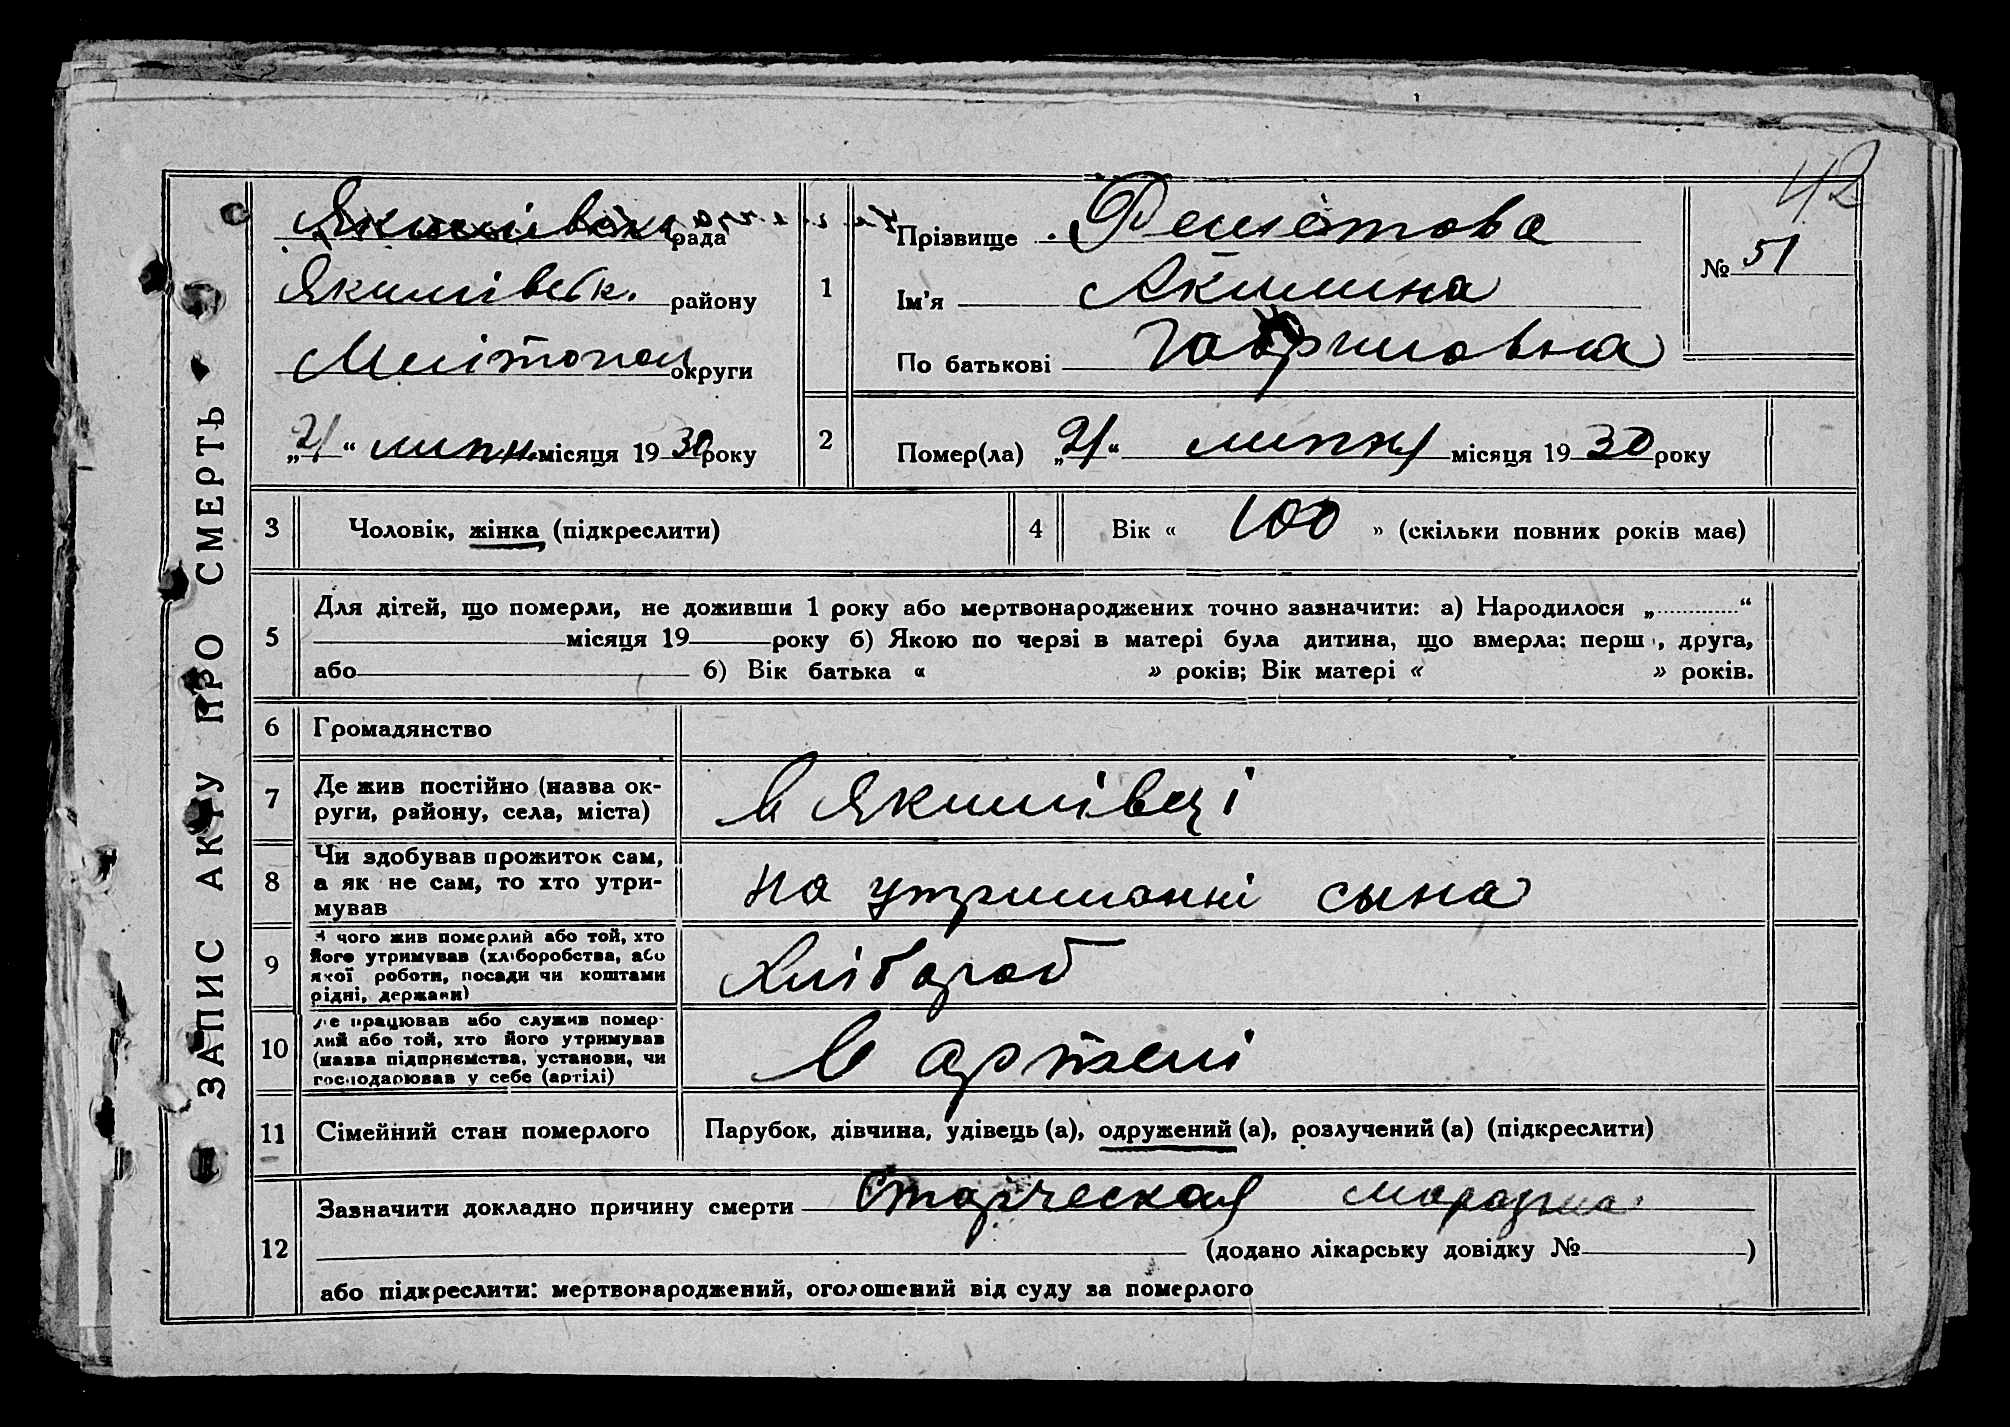 42
ЗАПИС АКТУ ПРО СМЕРТЬ
Якимівська рада
Якимівськ. району
Мелітопол округи
„21“ липн. місяця 1930 року
1
Прізвище
Ім'я Акилина
По батькові Гавриловна
№ 51
2
Помер(ла) „21“ липня місяця 1930 року
3 Чоловік, жінка (підкреслити)
4 Вік « 100 » (скільки повних років має)
5
Для дітей, що померли, не доживши 1 року або мертвонароджених точно зазначити: а) Народилося „ “
місяця 19 року б) Якою по черзі в матері була дитина, що вмерла: перш , друга,
або б) Вік батька « » років; Вік матері « » років.
6 Громадянство
7 Де жив постійно (назва ок-
руги, району, села, міста)
в Якимівці
8 Чи здобував прожиток сам,
а як не сам, то хто утри-
мував
на утриманні сына
9 З чого жив померлий або той, хто
його утримував (хліборобства, або
якої роботи, посади чи коштами
рідні, держави)
Хлібороб
10 Де працював або служив помер-
лий або той, хто його утримував
(назва підприємства, установи, чи
господарював у себе (артілі)
в артелі
11 Сімейний стан померлого
Парубок, дівчина, удівець (а), одружений (а), розлучений (а) (підкреслити)
12
Зазначити докладно причину смерти Старческая
(додано лікарську довідку № )
або підкреслити: мертвонароджений, оголошений від суду за померлого